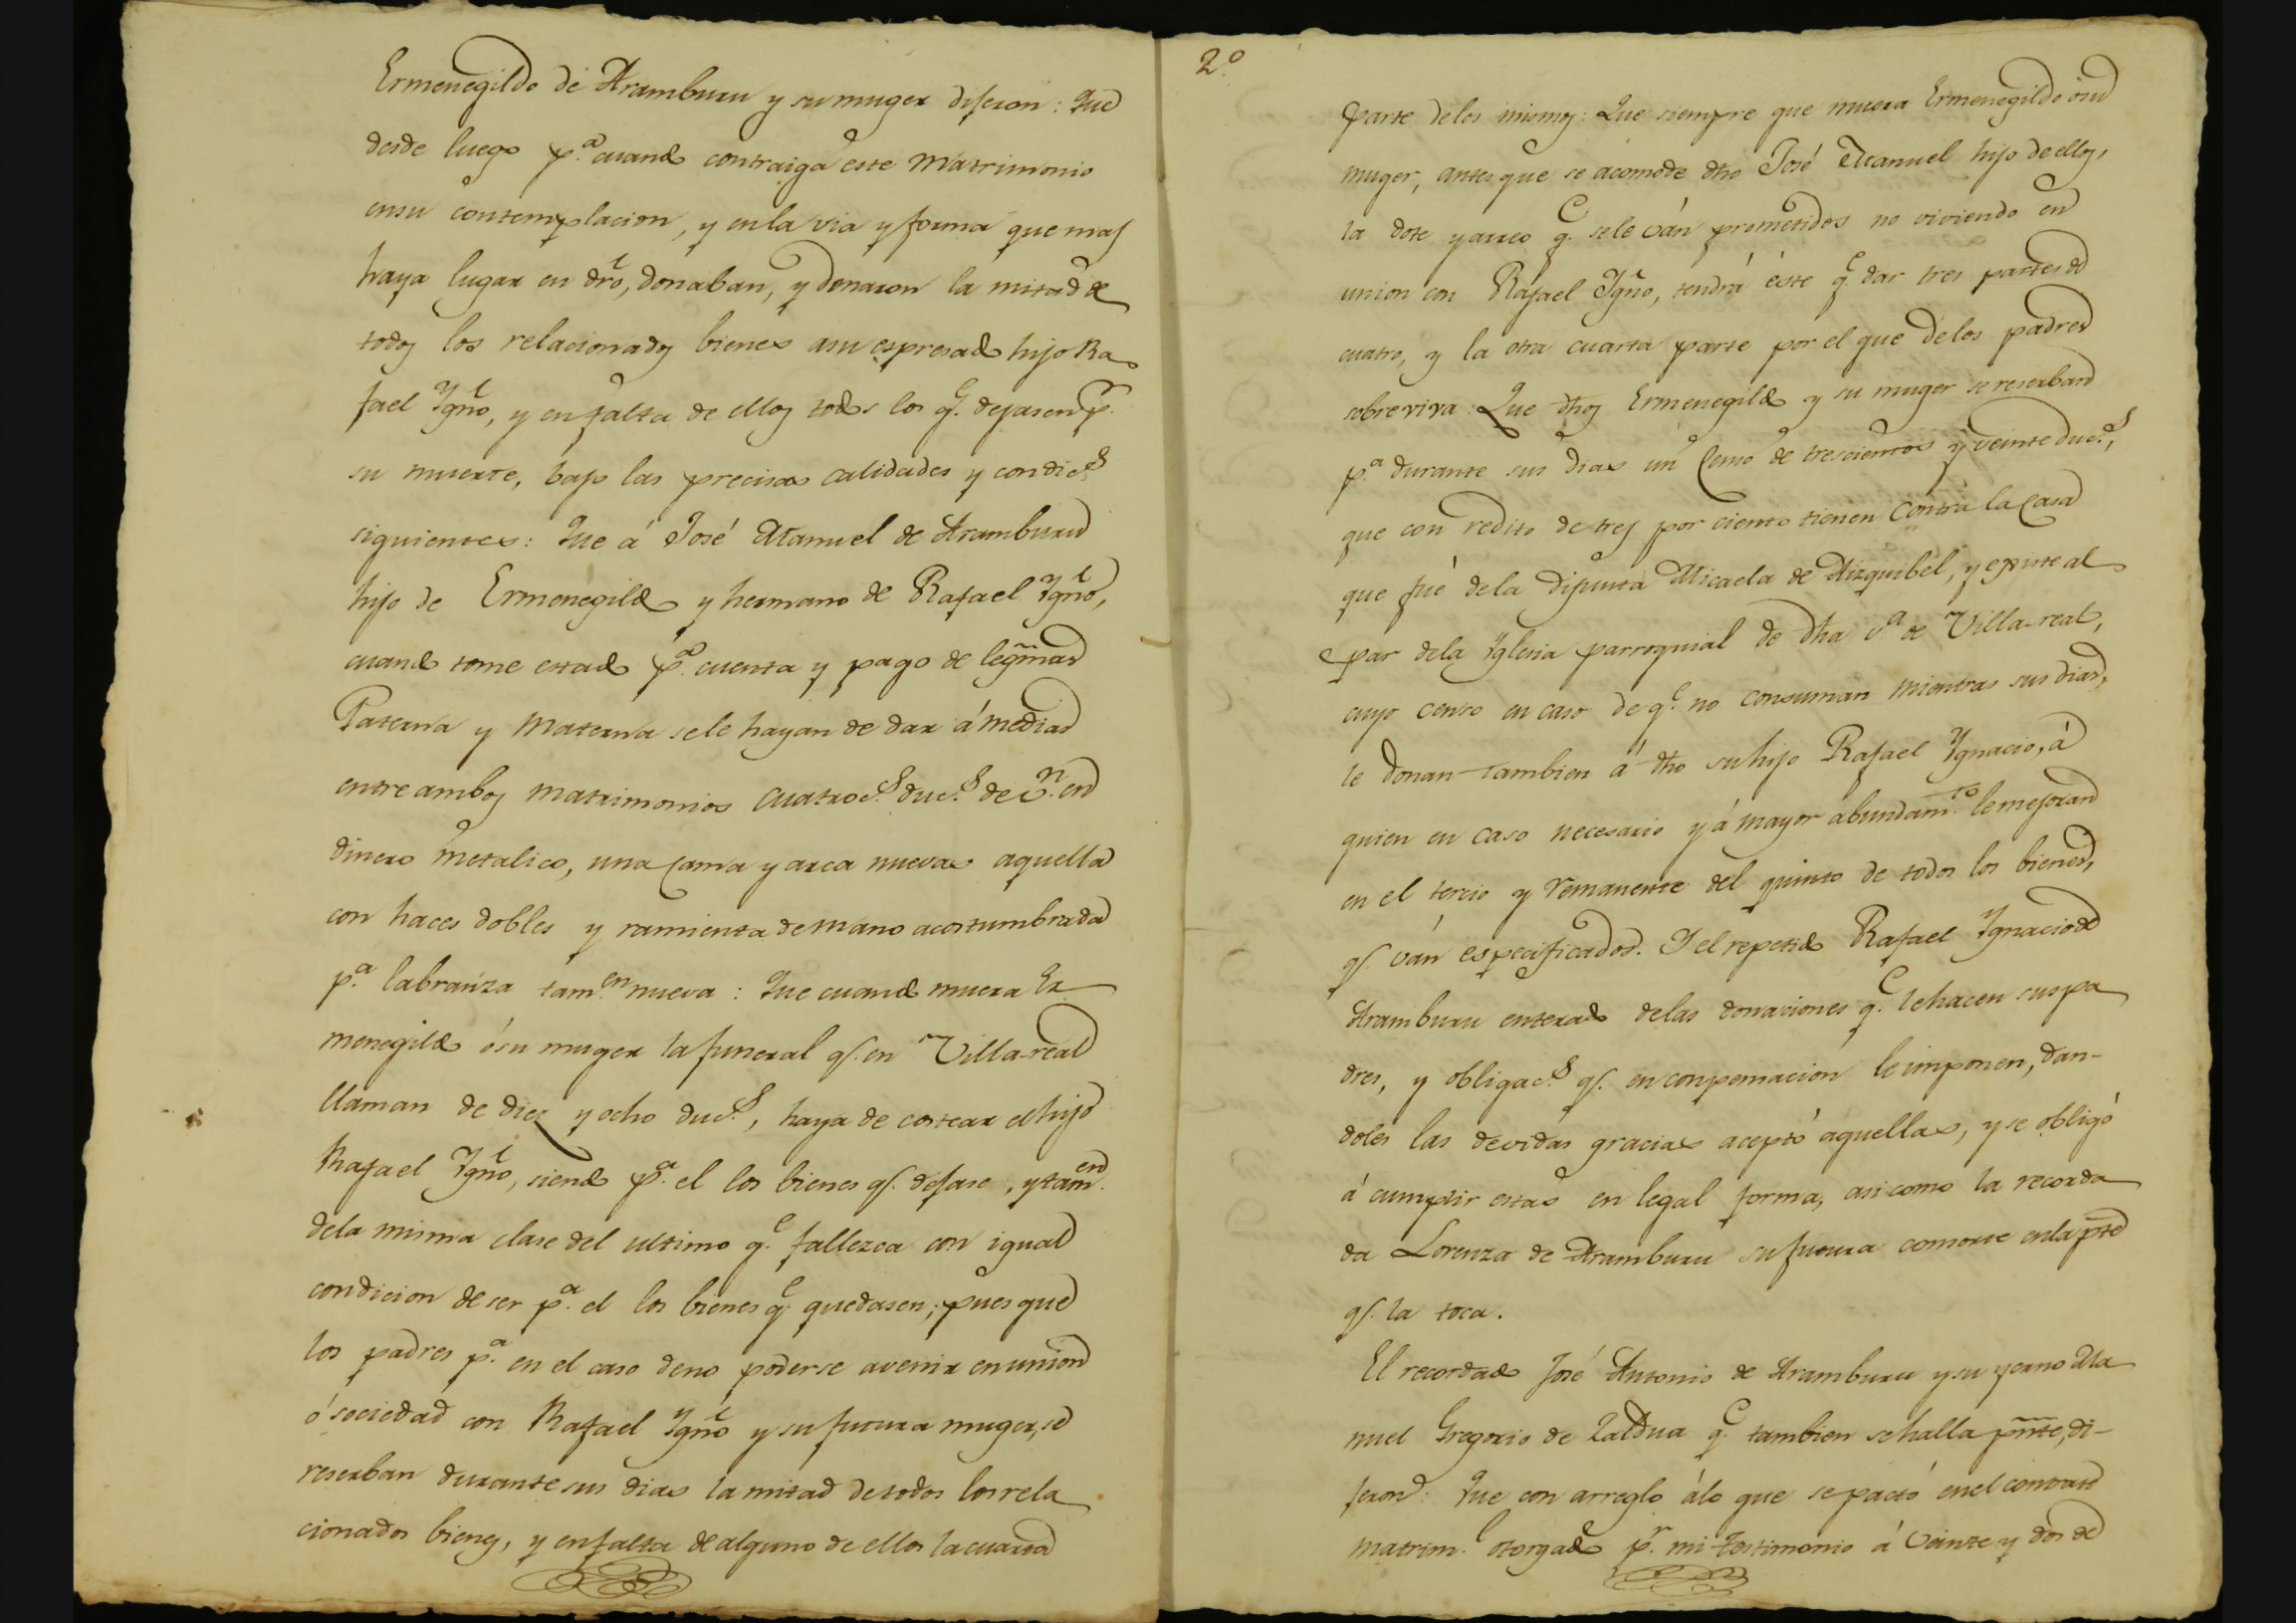 Ermenegildo de Aramburu y su muger dijeron: Que
desde luego p.ª cuando contraiga este Matrimonio
en su contemplacion, y en la via y forma que mas
haya lugar en dro, donaban, y donaron la mitad de
todos los relacionados bienes a su espresado hijo Ra
fael Ygño, y en falta de ellos todos los q.e dejasen p.r
su muerte, bajo las precisas calidades y condic.s
siguientes: Que á José Manuel de Aramburu
hijo de Ermenegildo y hermano de Rafael Ygño,
cuando tome estado p.ª cuenta y pago de legmas
Paterna y Materna se le hayan de dar á medias
entre ambos matrimonios cuatroc.s duc.s de v.n en
dinero metalico, una cama y arca nuevas aquella
con haces dobles y ramienta de mano acostumbrada
p.ª labranza tam.en nueva: Que cuando muera Er
menegildo ó su muger la funeral q.e en Villa-real
llaman de diez y ocho duc.s, haya de costear el hijo
Rafael Ygño, siendo p.ª el los bienes q.e dejase, y tam.en
de la misma clase del ultimo q.e fallezca con igual
condicion de ser p.ª el los bienes q.e quedasen; pues que
los padres p.ª en el caso de no poderse avenir en union
ó sociedad con Rafael Ygño y su futura muger, se
reserban durante sus dias la mitad de todos los rela
cionados bienes, y en falta de alguno de ellos la cuarta
2.º
parte de los mismos: Que siempre que muera Ermenegildo ó su
muger, antes que se acomode dho José Manuel hijo de ellos,
la dote y arreo q.e se le ván prometidos no viviendo en
union con Rafael Ygño, tendrá éste q.e dar tres partes de
cuatro, y la otra cuarta parte por el que de los padres
sobreviva: Que dhos Ermenegildo y su muger se reserban
p.ª durante sus dias un Censo de trescientos y veinte duc.s,
que con redito de tres por ciento tienen contra la Casa
que fué de la difunta Micaela de Aizquibel, y existe al
par de la Yglesia parroquial de dha v.ª de Villa-real,
cuyo censo en caso de q.e no consuman mientras sus dias,
le donan tambien á dho su hijo Rafael Ygnacio, á
quien en caso necesario y á mayor abundam.to le mejoran
en el tercio y remanente del quinto de todos los bienes,
q.e ván especificados. Y el repetido Rafael Ygnacio de
Aramburu enterado de las donaciones q.e le hacen sus pa
dres, y obligac.s q.e en conpensacion le imponen, dan-
doles las devidas gracias aceptó aquellas, y se obligó
á cumplir estas en legal forma, asi como la recorda
da Lorenza de Aramburu su futura consorte en la pte
q.e la toca.
El recordado José Antonio de Aramburu y su yerno Ma
nuel Gregorio de Zaldua q.e tambien se halla pnte, di-
jeron: Que con arreglo á lo que se pactó en el contrato
matrim.l otorgado p.r mi testimonio á veinte y dos de